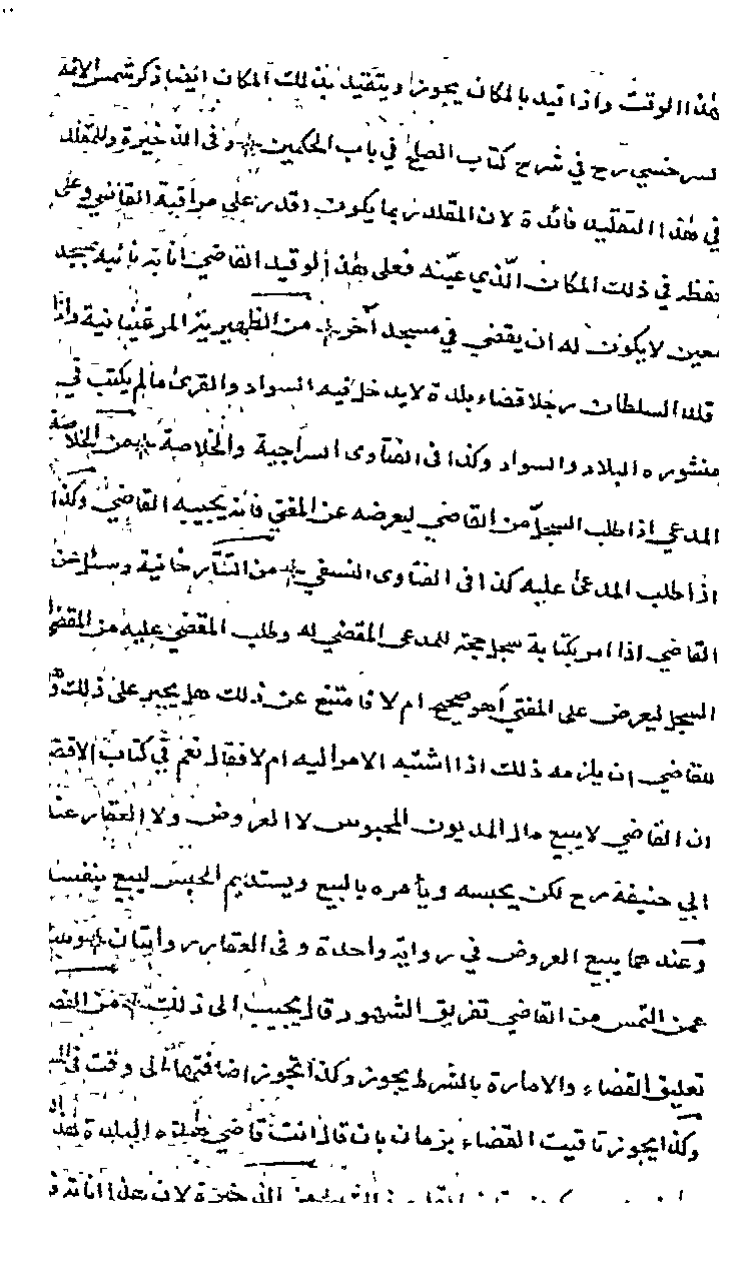 هذا الوقت واذا قيد بالمكان يجوز ويتقيد بذلك المكان ايضا ذكر شمس الائمة
السرخسي رح في شرح كتاب الصلح في باب الحكمين وفى الذخيرة وللمقلد
في هذا التقليد فائدة لان المقلد ربما يكون اقدر على مراقبة القاضي وعلى
حفظه في ذلك المكان الذي عينه فعلى هذا لو قيد القاضي انابة نائبه بمسجد
معين لا يكون له ان يقضي في مسجد آخر من الظهيرية المرغينانية واذا
قلد السلطان رجلا قضاء بلدة لا يدخل فيه السواد والقرى ما لم يكتب في
منشوره البلاد والسواد وكذا فى الفتاوى السراجية والخلاصة من الخلاصة
المدعي اذا طلب السجل من القاضي ليعرضه عن المفتي فانه يجيبه القاضي وكذا
اذا طلب المدعى عليه كذا فى الفتاوى النسفي من التتارخانية وسئل عن
القاضي اذا امر بكتابة سجل حجة للمدعى المقضي له وطلب المقضي عليه من المقضي
السجل ليعرض على المفتي أهو صحيح ام لا فامتنع عن ذلك هل يجبر على ذلك
للقاضي ان يلزمه ذلك اذا اشتبه الامر اليه ام لا فقال نعم في كتاب الاقضية
ان القاضي لا يبيع مال المديون المحبوس لا العروض ولا العقار عند
ابي حنيفة رح لكن يحبسه ويأمره بالبيع ويستديم الحبس ليبيع بنفسه
وعندهما يبيع العروض في رواية واحدة وفى العقار روايتان وسئل
عمن التمس من القاضي تفريق الشهود قال يجيب الى ذلك من
تعليق القضاء والامارة بالشرط يجوز وكذا تجوز اضافتهما الى وقت في
وكذا يجوز تاقيت القضاء بزمان بان قال انت قاضي هذه البلدة هذا
من الذخيرة لان هذا انابة